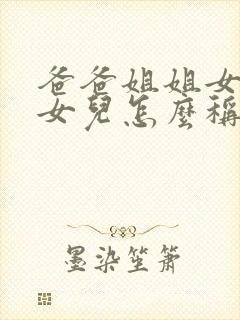 爸爸姐姐女
女兒怎麼稱
墨染笙簫